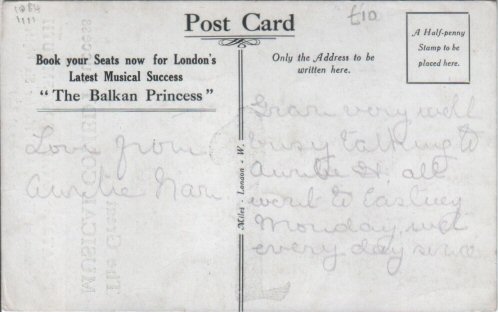 Post Card
£10
A Half-penny
Stamp to be
placed here.
Book your Seats now for London's
Latest Musical Success
"The Balkan Princess"
Only the Address to be
written here.
Love from
Auntie Nan
Gran very well
busy talking to
Auntie H. all
went to Eastney
Monday, wet
every day since
Miles - London - W.